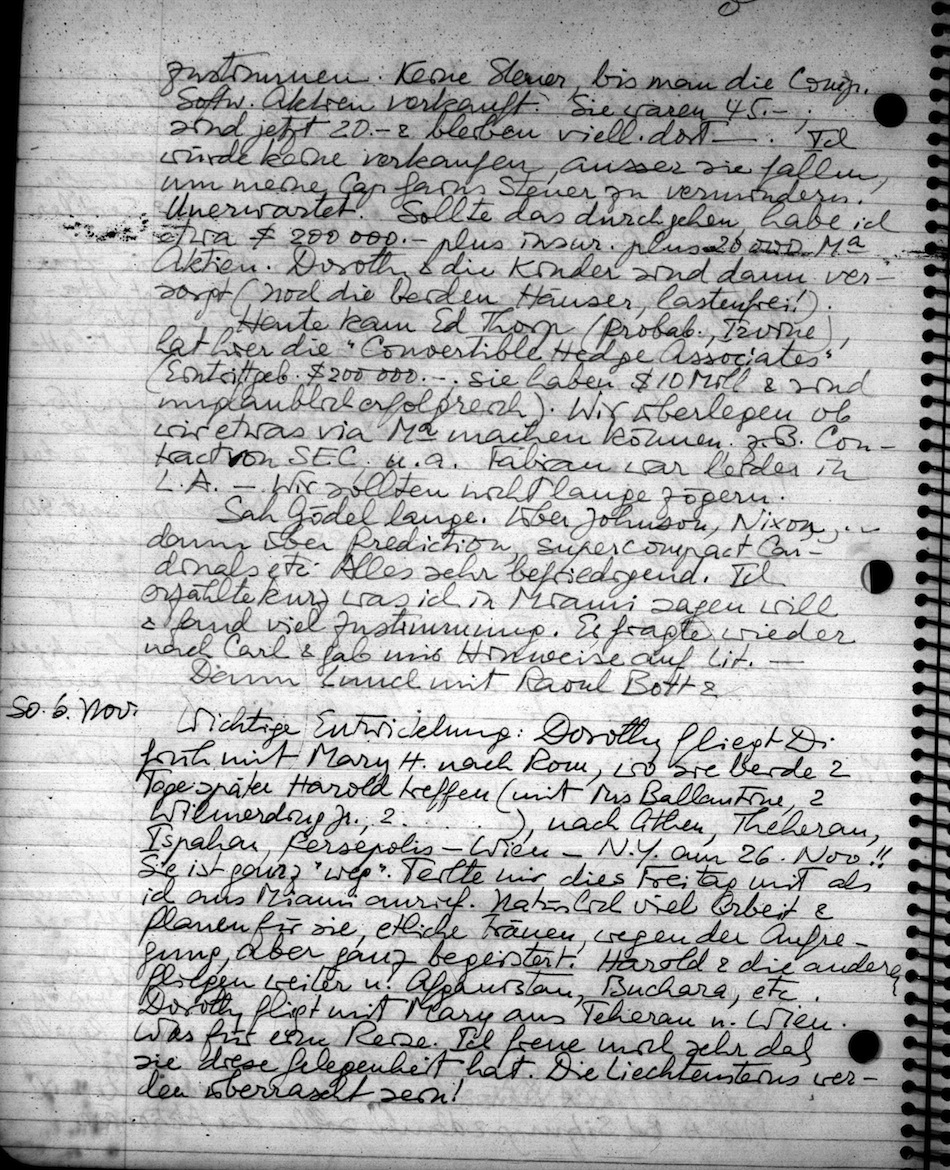 zustimmen. Keine Steuer, bis man die Comp.
Softw. Aktien verkauft. Sie waren 45.-,
sind jetzt 20.- & bleiben viell. dort —. Ich
würde keine verkaufen, ausser sie fallen,
um meine Cap gains Steuer zu vermindern.
Unerwartet. Sollte das durchgehen, habe ich
etwa $ 200 000.- plus insur. plus 20 000 Ma
Aktien. Dorothy & die Kinder sind dann ver-
sorgt (noch die beiden Häuser, lastenfrei!).
Heute kam Ed Thorp (Probab., Irvine),
hat hier die "Convertible Hedge Associates"
(Eintrittgeb. $ 200 000.-. sie haben $ 10 Mill & sind
unglaublich erfolgreich). Wir überlegen ob
wir etwas via Ma machen können. z.B. Con-
tract von SEC u.a. Fabian war leider in
L.A. — Wir sollten nicht lange zögern.
Sah Gödel lange. Über Johnson, Nixon, ..
dann über Prediction, supercompact Car-
dinals etc. Alles sehr befriedigend. Ich
erzählte kurz was ich in Miami sagen will
& fand viel Zustimmung. Er fragte wieder
nach Carl & gab mir Hinweise auf Lit. —
Dann Lunch mit Raoul Bott &
So. 6. Nov. Wichtige Entwicklung: Dorothy fliegt Di
früh mit Mary H. nach Rom, wo sie beide 2
Tage später Harold treffen (mit Mrs Ballantine, 2
Wilmerding Jr., 2 ........), nach Athen, Theheran,
Ispahan, Persepolis — Wien — N.Y. am 26. Nov!!
Sie ist ganz "weg". Teilte mir dies Freitag mit als
ich aus Miami anrief. Natürlich viel Arbeit &
planen für sie, etliche Tränen, wegen der Aufre-
gung, aber ganz begeistert. Harold & die andern
fliegen weiter n. Afganistan, Buchara, etc.
Dorothy fliegt mit Mary aus Teheran n. Wien.
Was für eine Reise. Ich freue mich sehr daß
sie diese Gelegenheit hat. Die Liechtensteins wer-
den überrascht sein!